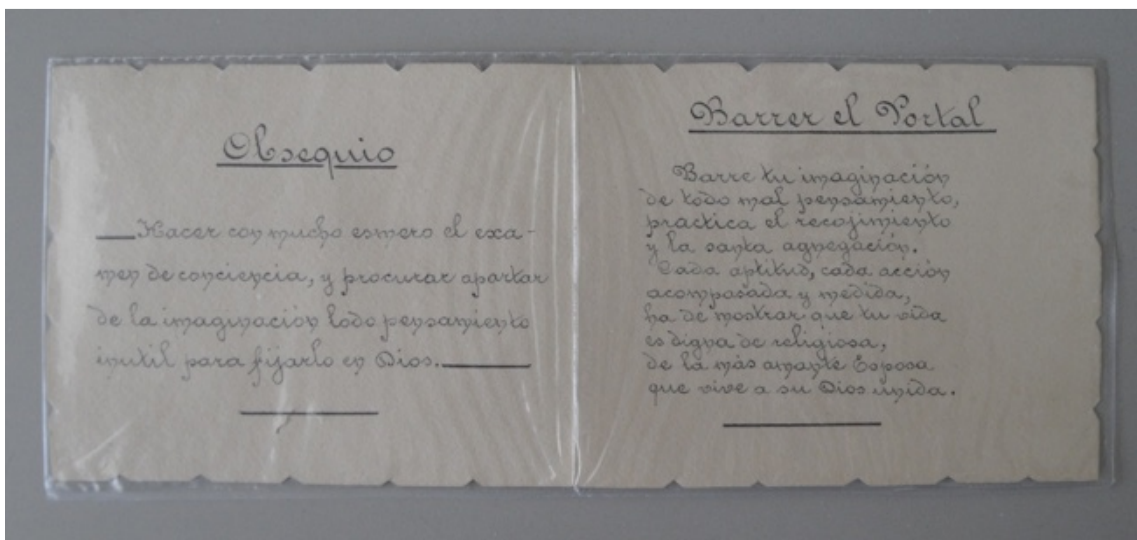 Obsequio
Hacer con mucho esmero el exa-
men de conciencia, y procurar apartar
de la imaginación todo pensamiento
inutil para fijarlo en Dios.
Barrer el Portal
Barre tu imaginación
de todo mal pensamiento,
practica el recojimiento
y la santa agnegación.
Cada aptitud, cada acción
acompasada y medida,
ha de mostrar que tu vida
es digna de religiosa,
de la más amante Esposa
que vive a su Dios unida.